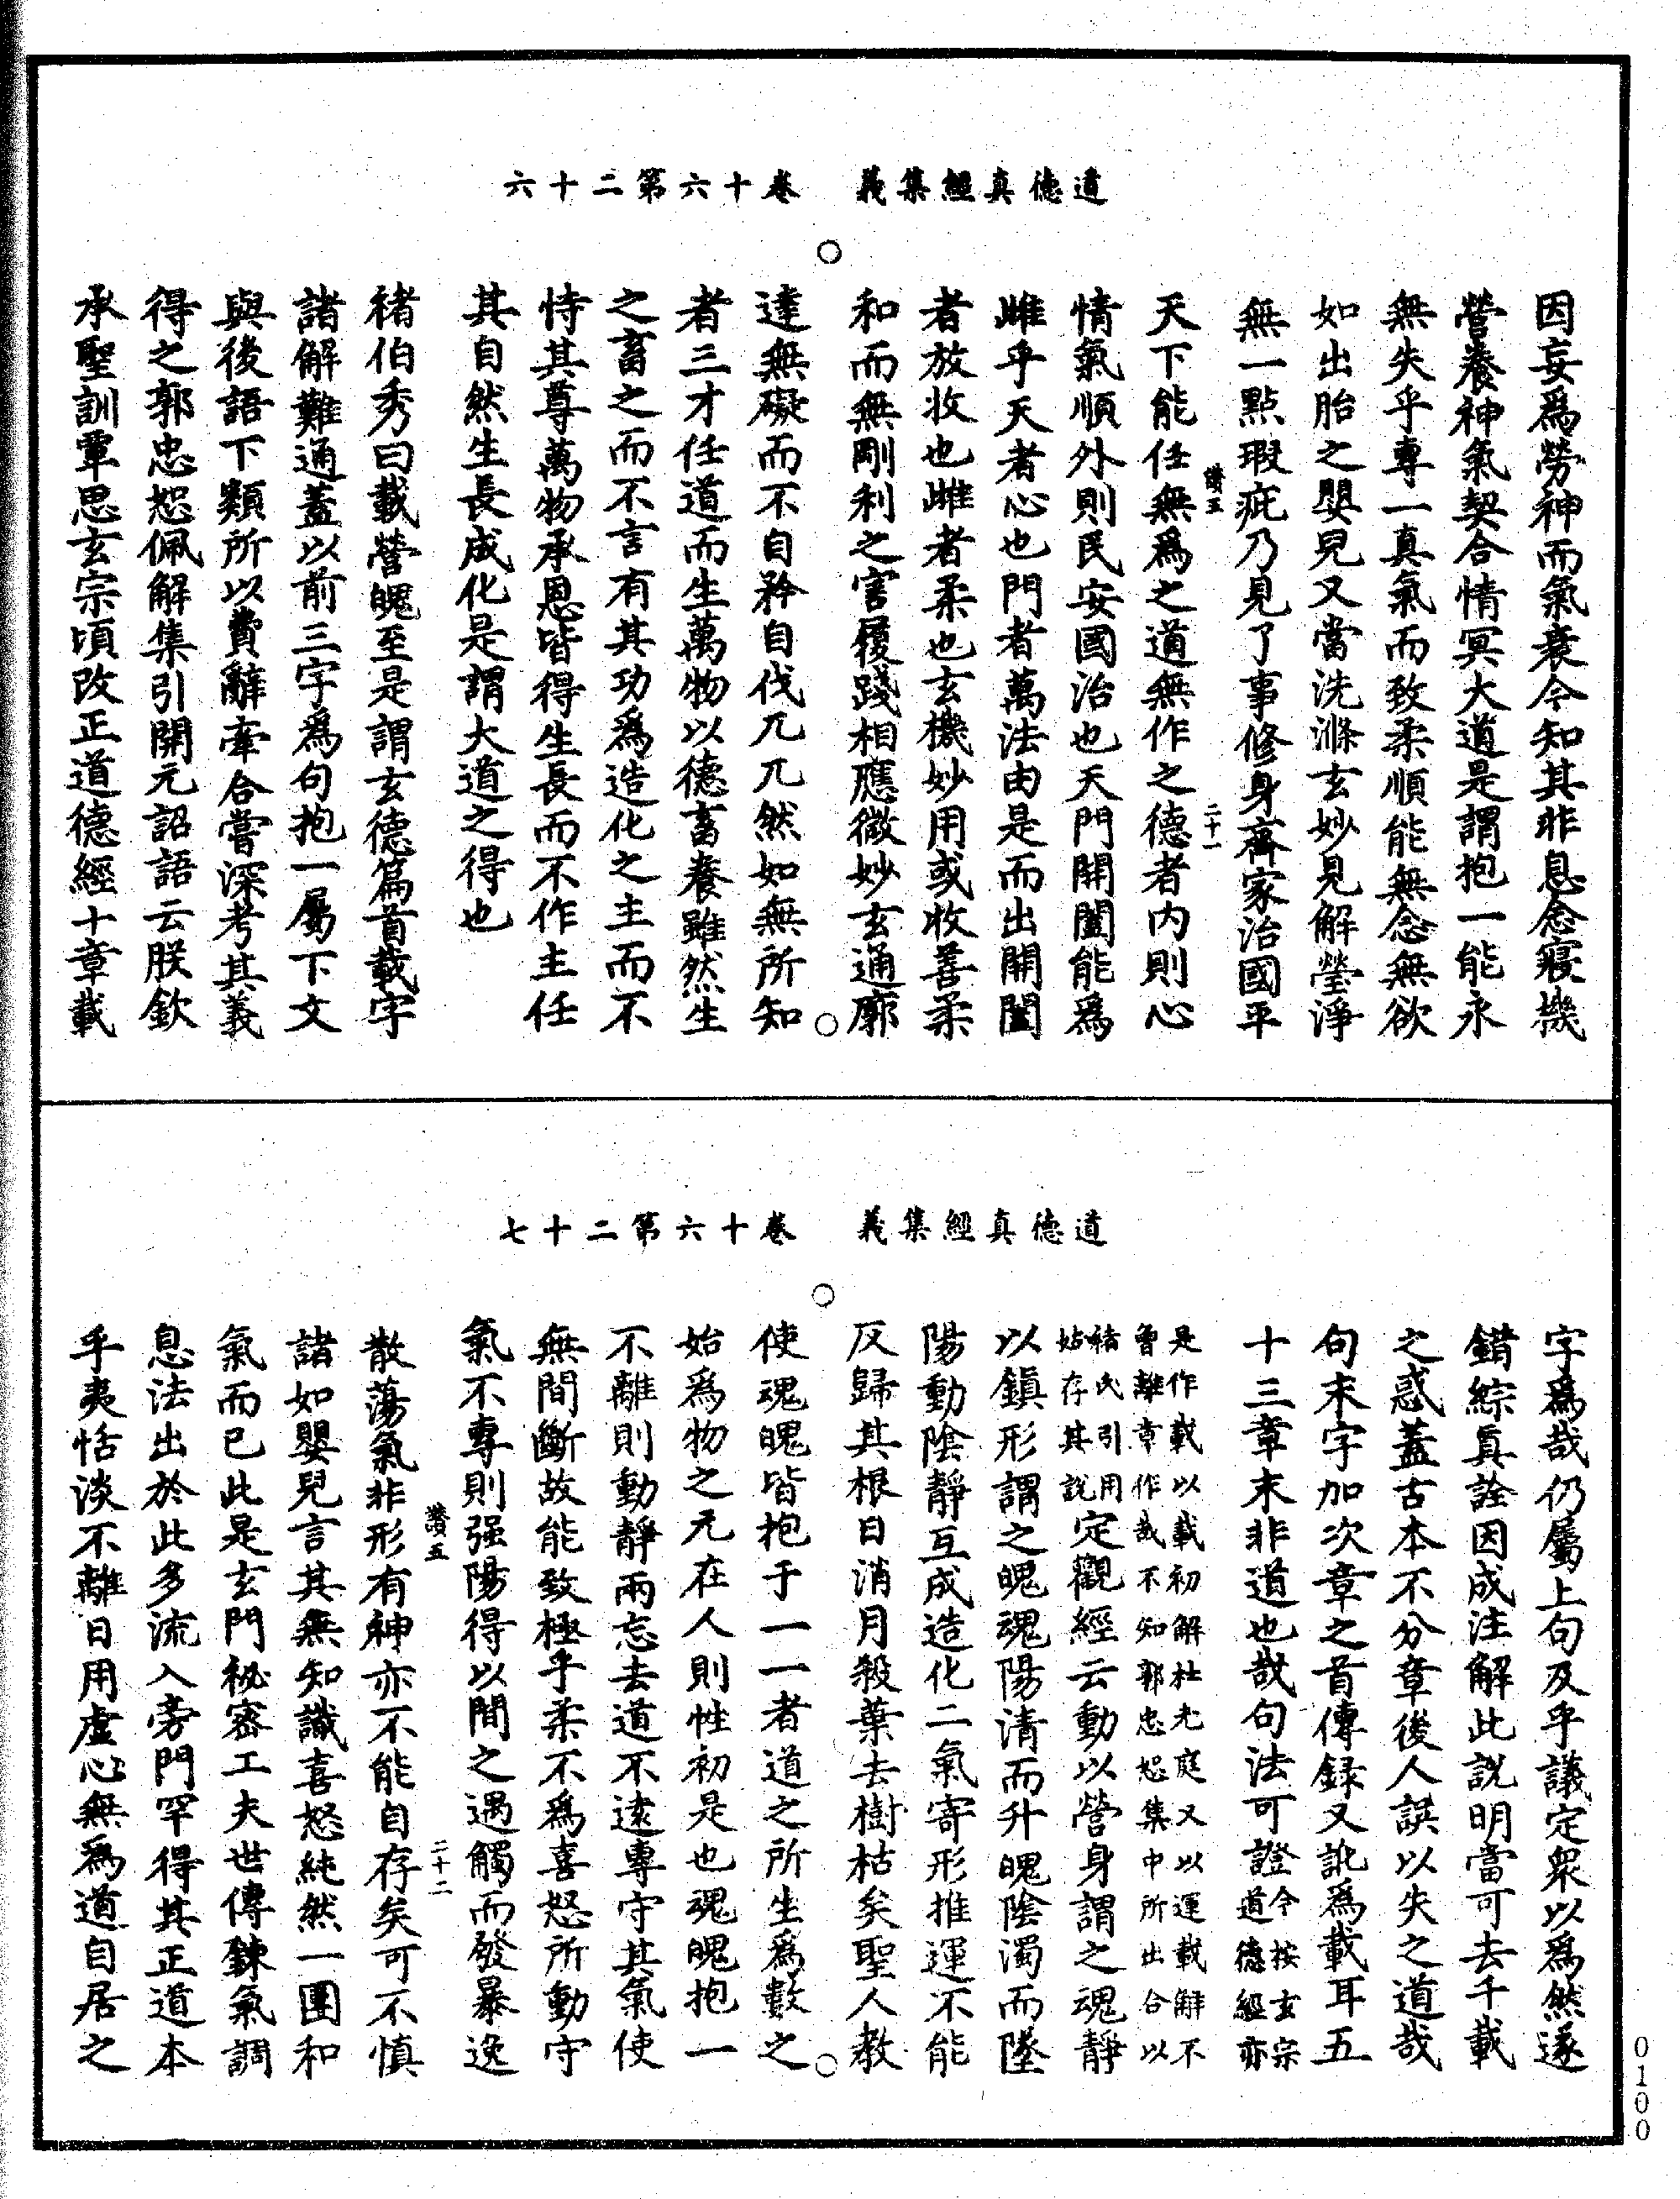 道德真經集義　卷十六第二十六
因妄爲勞神而氣衰今知其非息念寢機
營養神氣契合情冥大道是謂抱一能永
無失乎專一真氣而致柔順能無念無欲
如出胎之嬰兒又當洗滌玄妙見解瑩淨
無一點瑕疵乃見了事修身齊家治國平
讚五　二十一
天下能任無爲之道無作之德者内則心
情氣順外則民安國治也天門開闔能爲
雌乎天者心也門者萬法由是而出開闔
者放收也雌者柔也玄機妙用或收善柔
和而無剛利之害履踐相應微妙玄通廓
達無礙而不自矜自伐兀兀然如無所知
者三才任道而生萬物以德畜養雖然生
之畜之而不言有其功爲造化之主而不
恃其尊萬物承恩皆得生長而不作主任
其自然生長成化是謂大道之得也
褚伯秀曰載營魄至是謂玄德篇首載字
諸解難通蓋以前三字爲句抱一屬下文
與後語下類所以費辭牽合嘗深考其義
得之郭忠恕佩解集引開元詔語云朕欽
承聖訓覃思玄宗頃改正道德經十章載
道德真經集義　卷十六第二十七
字爲哉仍屬上句及乎議定衆以爲然遂
錯綜真詮因成注解此説明當可去千載
之惑蓋古本不分章後人誤以失之道哉
句末字加次章之首傳録又訛爲載耳五
十三章末非道也哉句法可證今按玄宗道德經亦
是作載以載初解杜光庭又以運載解不曾離章作哉不知郭忠恕集中所出合以
褚氏引用姑存其說定觀經云動以營身謂之魂靜
以鎮形謂之魄魂陽清而升魄陰濁而墜
陽動陰靜互成造化二氣寄形推運不能
反歸其根日消月殺葉去樹枯矣聖人教
使魂魄皆抱于一一者道之所生爲數之
始爲物之元在人則性初是也魂魄抱一
不離則動靜兩忘去道不遠專守其氣使
無間斷故能致極乎柔不爲喜怒所動守
氣不專則强陽得以間之遇觸而發暴逸
讚五　二十二
散蕩氣非形有神亦不能自存矣可不慎
諸如嬰兒言其無知識喜怒純然一團和
氣而已此是玄門祕密工夫世傳鍊氣調
息法出於此多流入旁門罕得其正道本
乎夷恬淡不離日用虛心無爲道自居之
0100